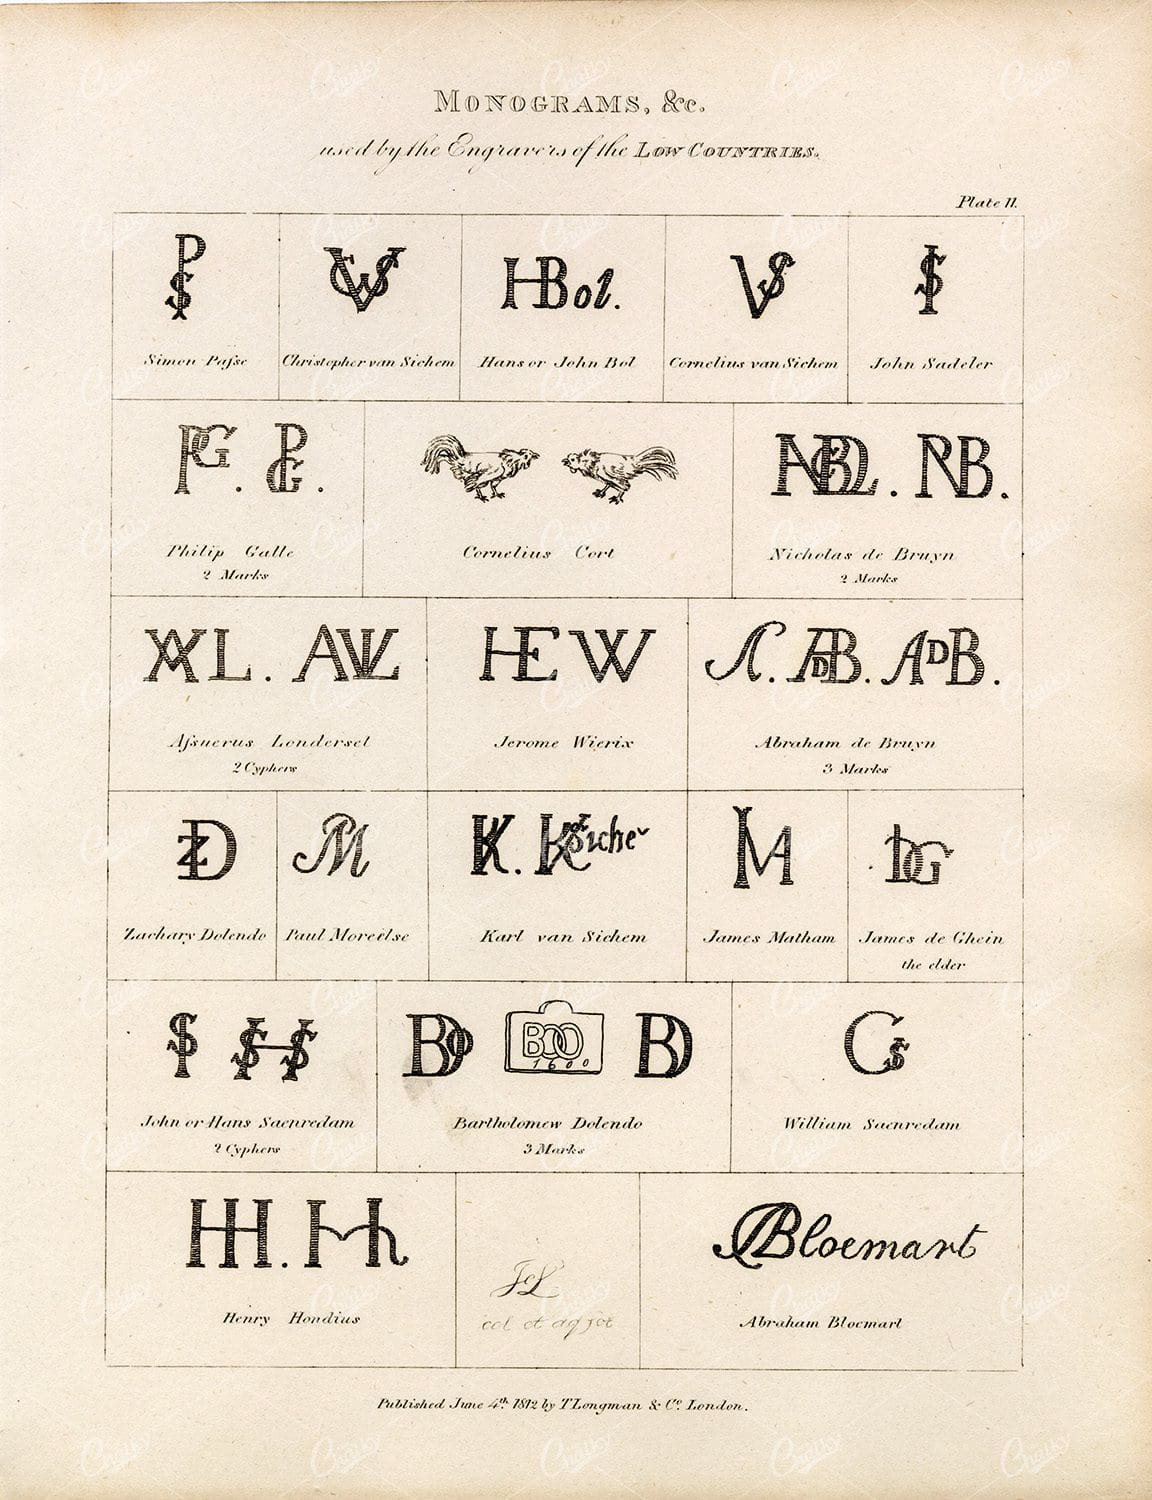 MONOGRAMS, &c.
used by the Engravers of the LOW COUNTRIES.
Plate II.
Simon Paſse
Christopher van Sichem
HBol.
Hans or John Bol
VS
Cornelius van Sichem
John Sadeler
Philip Galle
2 Marks
Cornelius Cort
Nicholas de Bruyn
2 Marks
Aſsuerus Londersel
2 Cyphers
HEW
Jerome Wierix
A. ADB. ADB.
Abraham de Bruyn
3 Marks
ZD
Zachary Dolendo
Paul Moreëlse
Karl van Sichem
James Matham
James de Ghein
the elder
John or Hans Saenredam
2 Cyphers
1600
Bartholomew Dolendo
3 Marks
GS
William Saenredam
HH. Hh
Henry Hondius
ABloemart
Abraham Bloemart
Published June 4th. 1812 by T Longman & Co. London.